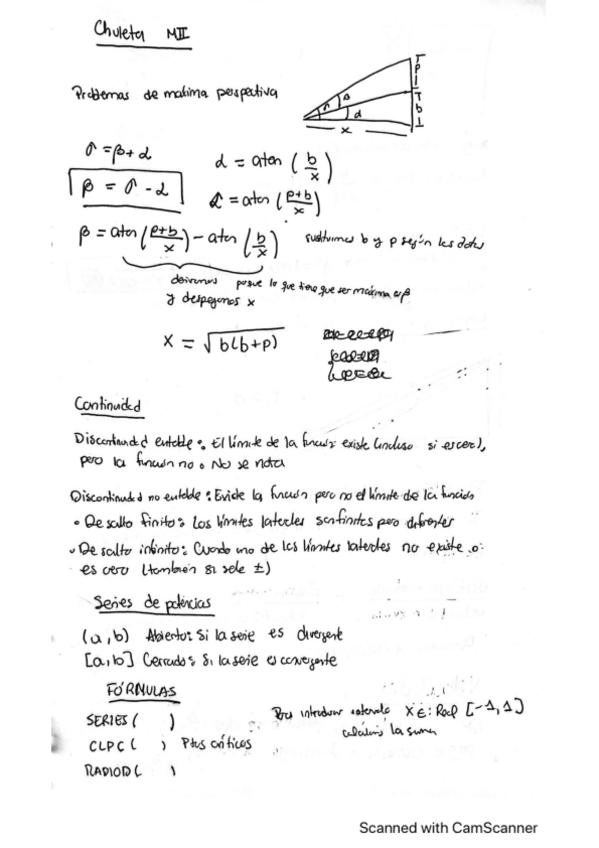 Chuleta MII
Problemas de maxima perspectiva
P
b
x
α
β
σ = β + α
β = σ - α
α = atan (b/x)
= atan (p+b/x)
β = atan (p+b/x) - atan (b/x)
sustituimos b y p según los datos
derivamos porque lo que tiene que ser máxima es β
y despejamos x
x = √b(b+p)
Continuidad
Discontinuidad evitable: El límite de la función existe (incluso si es cero),
pero la función no o No se nota
Discontinuidad no evitable: Existe la función pero no el límite de la función
• De salto finito: Los límites laterales son finitos pero diferentes
• De salto infinito: Cuando uno de los límites laterales no existe o
es cero (también si sale ±)
Series de potencias
(a,b) Abierto: Si la serie es divergente
[a,b] Cerrado: Si la serie es convergente
FÓRMULAS
SERIES ( )
CLPC ( ) Ptos críticos
RADIOD ( )
Para introducir intervalo X∈: Real [-1,1]
la suma
Scanned with CamScanner